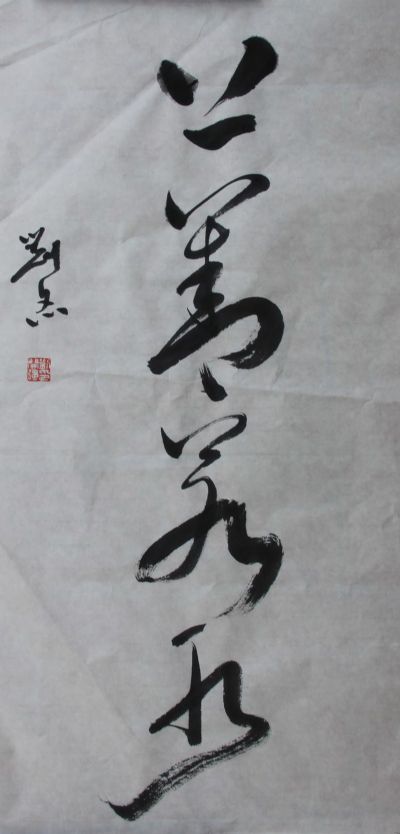 上善若水
劉